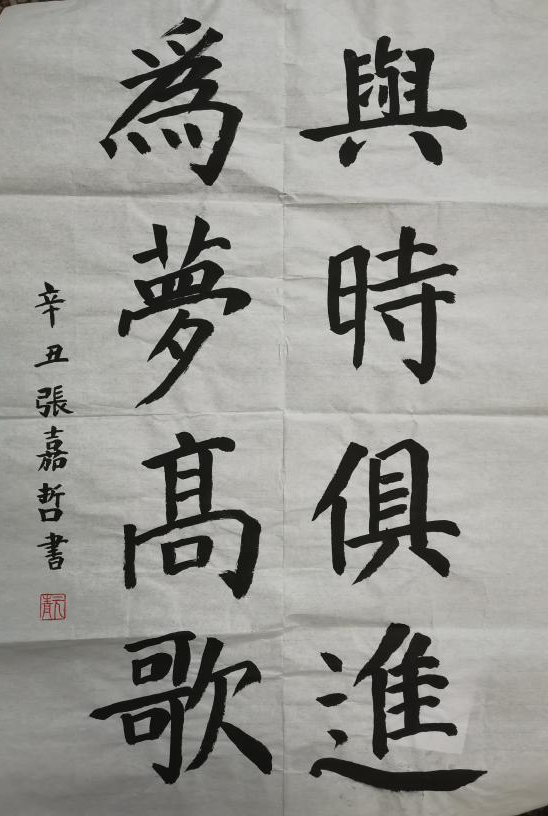 與時俱進
爲夢高歌
辛丑張嘉哲書